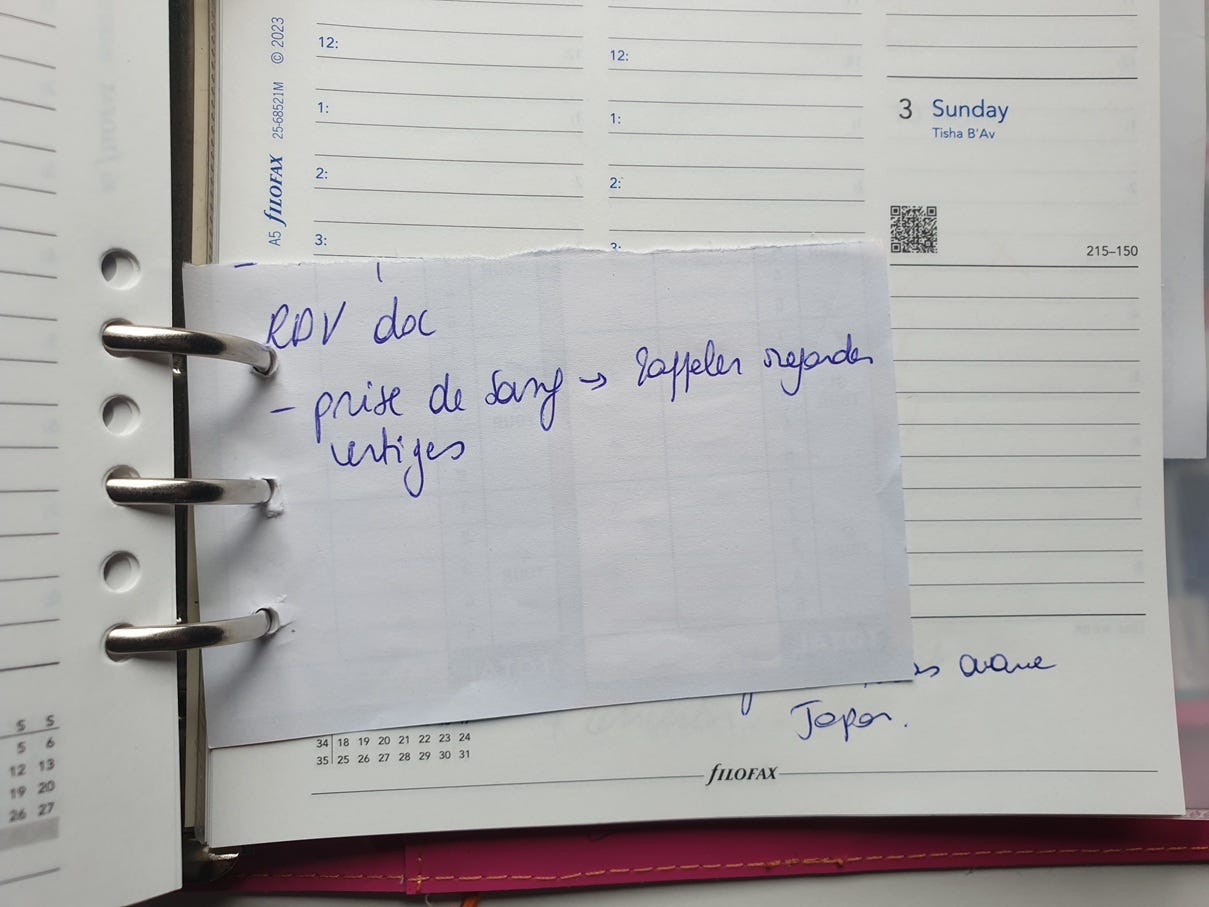 FILOFAX
A5
25-68521M
© 2023
12:
1:
2:
3:
12:
1:
2:
3:
3 Sunday
Tisha B'Av
215–150
RDV doc
- prise de sang → rappeler regarder
vertiges
avant
Japon.
34 18 19 20 21 22 23 24
35 25 26 27 28 29 30 31
FILOFAX
S S
5 6
12 13
19 20
26 27